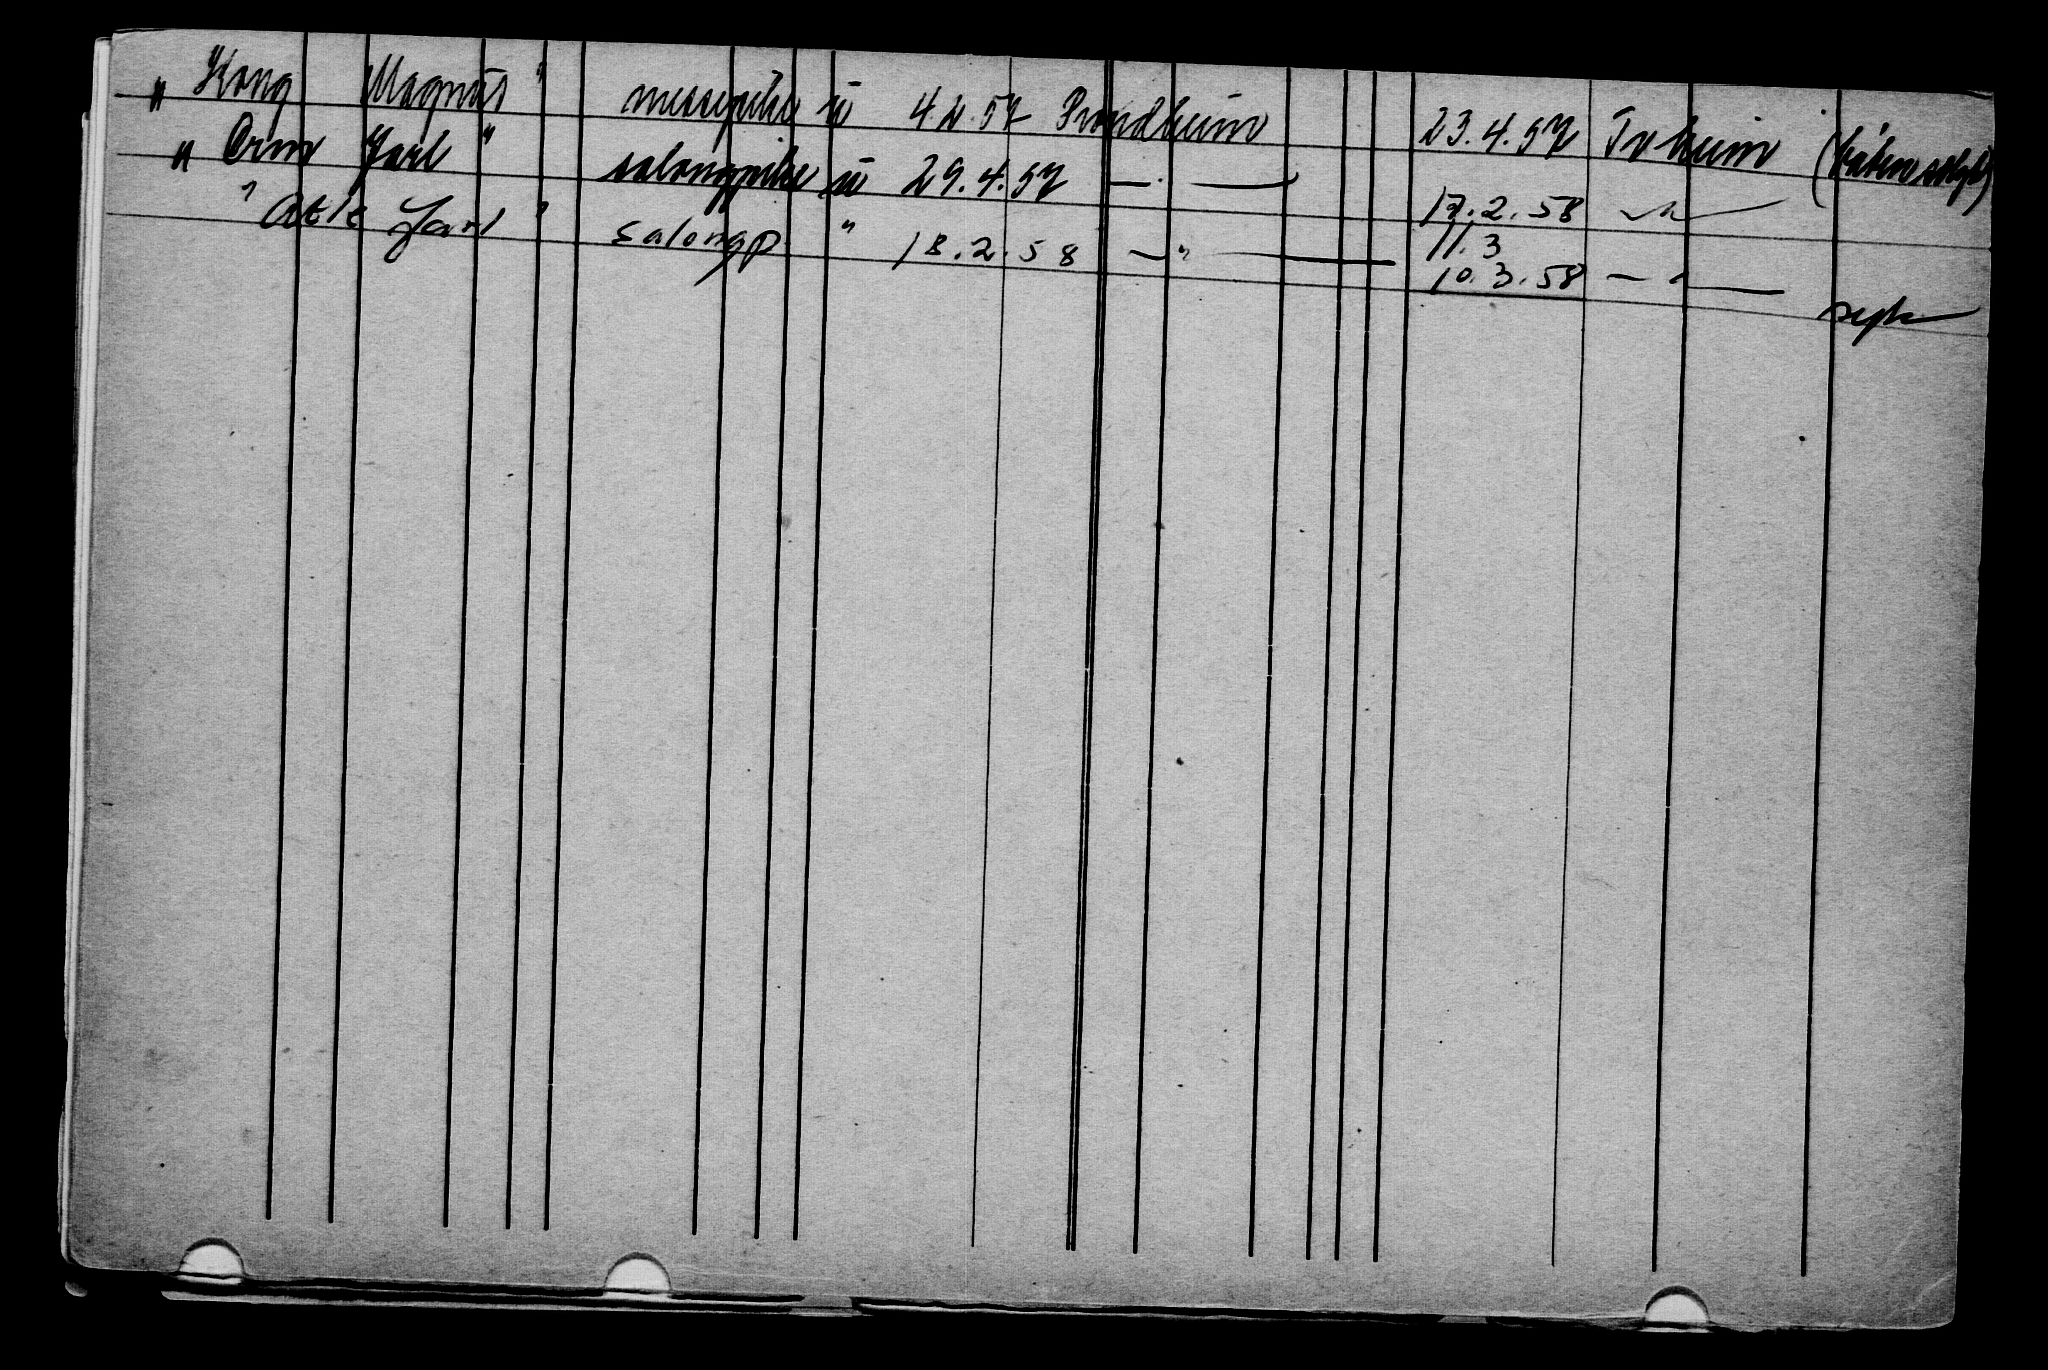 "Kong Magnus" messepike u 4.2.57 Trondheim 23.4.57 Trheim (båten solgt)
"Orm Jarl" salongpike u 29.4.57 — " — 17.2.58 — " —
"Atle Jarl" salongp. " 18.2.58 — " — 11.3
10.3.58 — " — syk